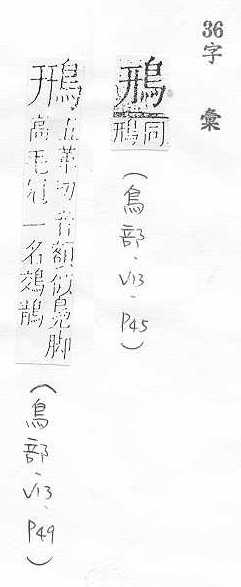 36字彙
鳽
同
鳽
(鳥部.V13.P45)
鳽
五革切音額似鳧脚
高毛冠一名鵁鶄
(鳥部.V13.P49)